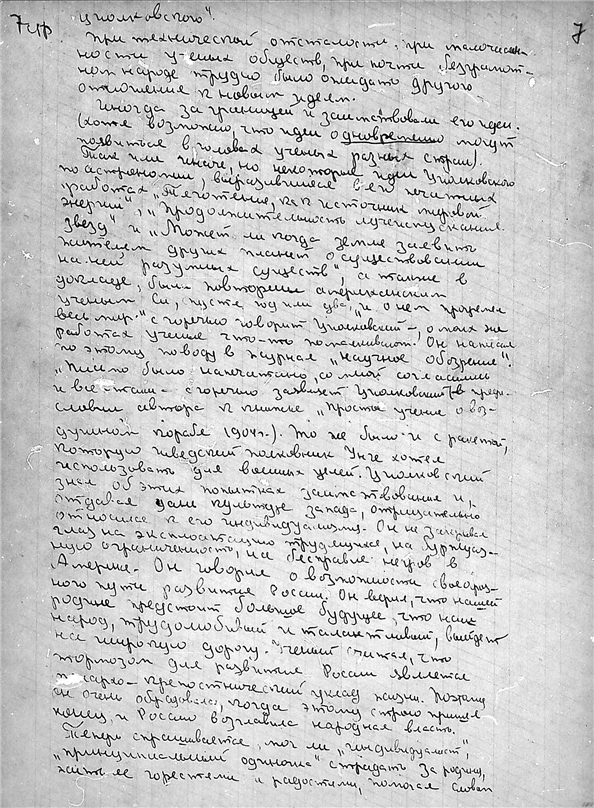 7 7
Циолковского".
При технической отсталости, при малочислен-
ности ученых обществ, при почти безграмот-
ном народе трудно было ожидать другого
отношения к новым идеям.
Иногда за границей и заимствовали его идеи.
(хотя возможно, что идеи одновременно могут
появиться в головах ученых разных стран).
Так или иначе, но некоторые идеи Циолковского
по астрономии, выразившиеся в его печатных
работах „Тяготение, как источник мировой
энергии", „Продолжительность лучеиспускания
звезд" и „Может ли когда земля заявить
жителям других планет о существовании
на ней разумных существ", а также в
докладе, были повторены американским
ученым Си, пусть год или два, „и о нем прогремел
весь мир." с горечью говорит Циолковский –, о моих же
работах ученые что-то помалкивают. Он написал
по этому поводу в журнал „Научное обозрение".
„Письмо было напечатано, со мной согласились
и все – с горечью заявляет Циолковский в преди-
словии автора к книжке „Простое учение о воз-
душном корабле 1904г.). То же было и с ракетой,
которую шведский полковник Унге хотел
использовать для военных целей. Циолковский
знал об этих попытках заимствования и,
отдавая дань культуре запада, отрицательно
относился к его индивидуализму. Он не закрывал
глаз на эксплоатацию трудящихся, на буржуаз-
ную ограниченность, на бесправие негров в
Америке. Он говорил о возможности своеобраз-
ного пути развития России. Он верил, что нашей
родине предстоит большое будущее, что наш
народ, трудолюбивый и талантливый, выйдет
на широкую дорогу. Ученый считал, что
тормозом для развития России является
крепостнический уклад жизни. Поэтому
он очень обрадовался, когда этому строю пришел
конец и Россию возглавила народная власть.
Теперь спрашивается, мог ли „индивидуалист",
„принципиальный одиночка" страдать за родину,
жить ее горестями и радостями, помогая словом